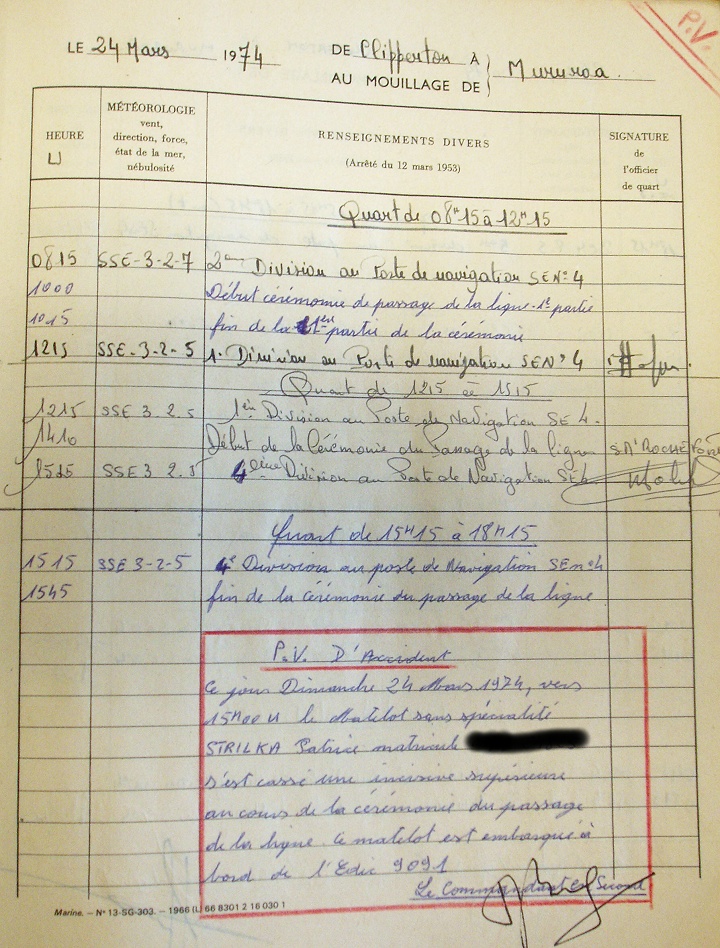 P.V.
LE 24 Mars 1974 DE Clipperton À
AU MOUILLAGE DE Mururoa
HEURE
U
MÉTÉOROLOGIE
vent,
direction, force,
état de la mer,
nébulosité
RENSEIGNEMENTS DIVERS
(Arrêté du 12 mars 1953)
SIGNATURE
de
l'officier
de quart
Quart de 08H15 à 12H15
0815 SSE-3-2-7 2ème Division au Poste de navigation SE N°4
1000 Début cérémonie de passage de la ligne-1e partie
1015 fin de la 1er partie de la cérémonie
1215 SSE-3-2-5 1. Division au Poste de navigation SE N°4
Quart de 1215 à 1515
1215 SSE 3.2.5 1ère Division au Poste de Navigation SE 4.
1410 Début de la Cérémonie du Passage de la ligne
1515 SSE 3 2.5 4ème Division au Poste de Navigation SE4
Quart de 15H15 à 18H15
1515 SSE 3-2-5 4e Division au poste de Navigation SE n°4
1545 fin de la cérémonie du passage de la ligne
P.V. D'Accident
Ce jour Dimanche 24 Mars 1974, vers
15H00 U le Matelot sans spécialité
STRILKA Patrice matricule
s'est cassé une incisive supérieure
au cours de la cérémonie du passage
de la ligne. Ce matelot est embarqué à
bord de l'Edic 9091
Le Commandant En Second
Marine. - N° 13-SG-303. - 1966 (L) 66 8301 2 16 030 1